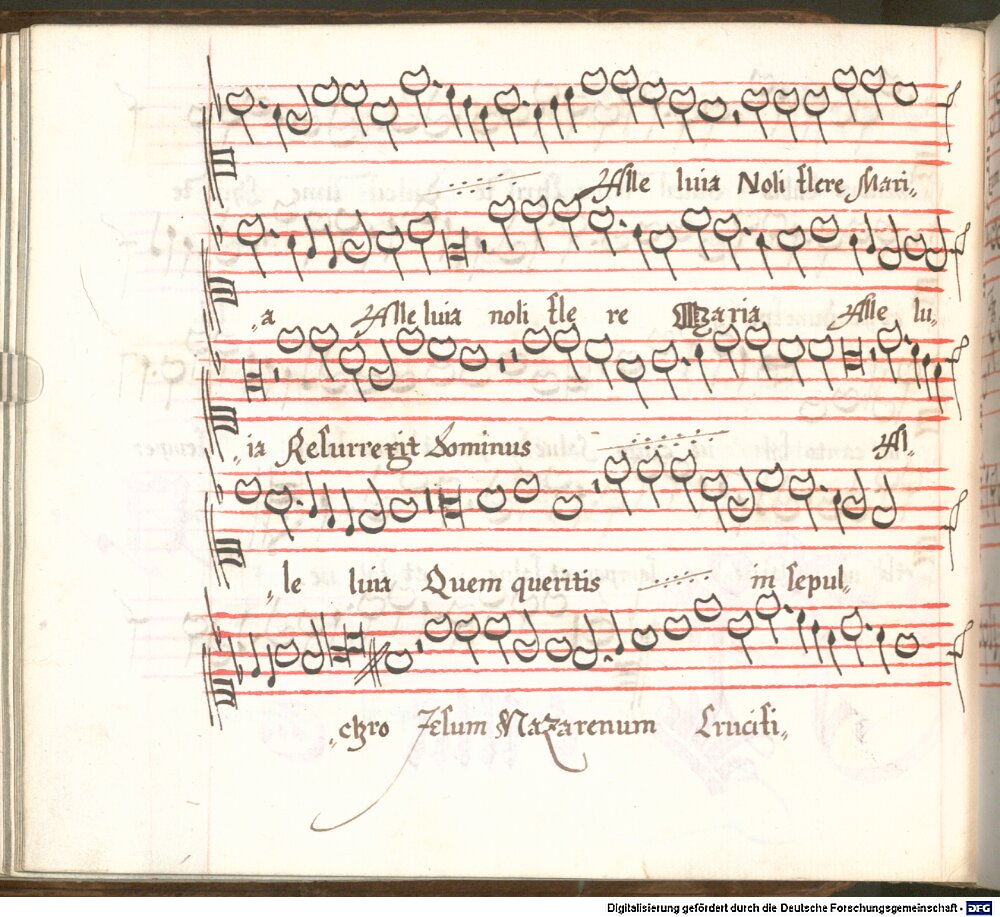 Alle luia Noli flere Mari„
„a Alle luia noli fle re Maria Alle lu„
„ia Resurrexit Dominus Al„
„le luia Quem queritis in sepul„
„chro Jesum Nazarenum Crucifi„
Digitalisierung gefördert durch die Deutsche Forschungsgemeinschaft - DFG